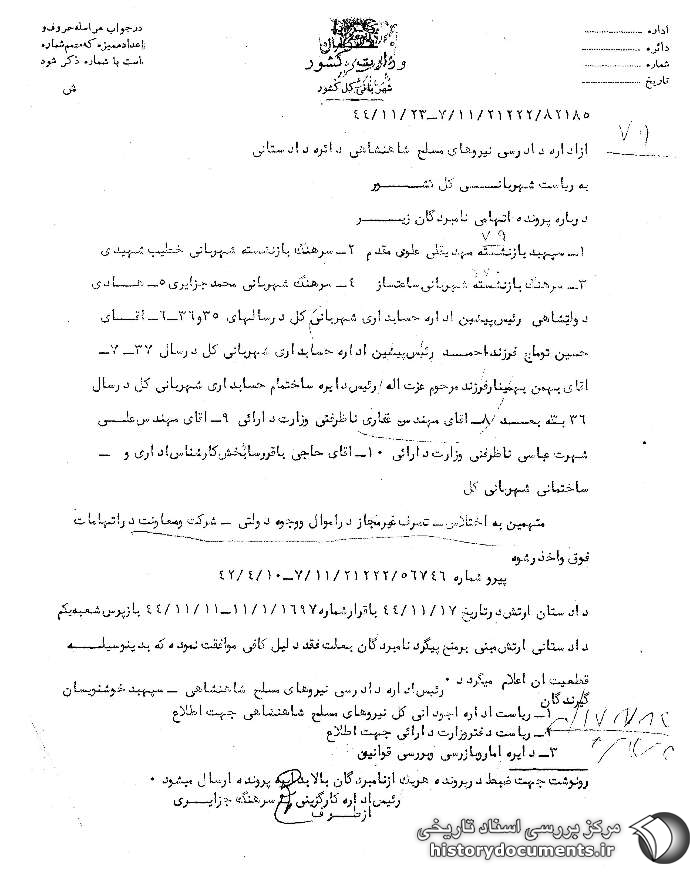 درجواب مراسله حروف و
اعداد ممیزه که متمم شماره
است با شماره ذکر شود
ش
وزارت کشور
شهربانی کل کشور
اداره
دائره
شماره
تاریخ
۴۴/۱۱/۲۳-۷/۱۱/۲۱۲۲۲/۸۲۱۸۵
از اداره دادرسی نیروهای مسلح شاهنشاهی دائره دادستانی
به ریاست شهربانی کل کشور
درباره پرونده اتهامی نامبردگان زیر
۱- سپهبد بازنشسته مهدیقلی علوی مقدم ۲- سرهنگ بازنشسته شهربانی خطیب شهیدی
۳- سرهنگ بازنشسته شهربانی ساعتساز ۴- سرهنگ شهربانی محمد جزایری ۵- هادی
دولتشاهی رئیس پیشین اداره حسابداری شهربانی کل در سالهای ۳۵ و ۳۶-۶- اقای
حسین تومان فرزند احمد رئیس پیشین اداره حسابداری شهربانی کل در سال ۳۷-۷-
اقای بهمن بهمنیار فرزند مرحوم عزت اله / رئیس دایره ساختمام حسابداری شهربانی کل در سال
۳۶ بته بعد / ۸- اقای مهندس غفاری ناظرفنی وزارت دارائی ۹- اقای مهندس علی
شهرت عباسی ناظرفنی وزارت دارائی ۱۰- اقای حاجی باقر رسابخش کارشناس اداری و -
ساختمانی شهربانی کل
متهمین به اختلاس - تصرف غیرمجاز در اموال و وجوه دولتی - شرکت و معاونت در اتهامات
فوق واخذ رشوه
پیرو شماره ۴۲/۴/۱۰-۷/۱۱/۲۱۲۲۲/۵۶۷۴۶
دادستان ارتش در تاریخ ۴۴/۱۱/۱۷ با قرار شماره ۱۱/۱/۱۶۹۷-۴۴/۱۱/۱۱ بازپرس شعبه یکم
دادستانی ارتش مبنی بر منع پیگرد نامبردگان بعلت فقد دلیل کافی موافقت نموده که بدینوسیله
قطعیت ان اعلام میگردد .
رئیس اداره دادرسی نیروهای مسلح شاهنشاهی - سپهبد خوشنویسان
گیرندگان
۱- ریاست اداره اجودانی کل نیروهای مسلح شاهنشاهی جهت اطلاع
۲- ریاست دفتر وزارت دارائی جهت اطلاع
۳- دایره امار و بازرسی و بررسی قوانین
رونوشت جهت ضبط در پرونده هریک از نامبردگان بالا بدایره پرونده ارسال میشود .
رئیس اداره کارگزینی سرهنگ جزایری
از طرف
مرکز بررسی اسناد تاریخی
historydocuments.ir